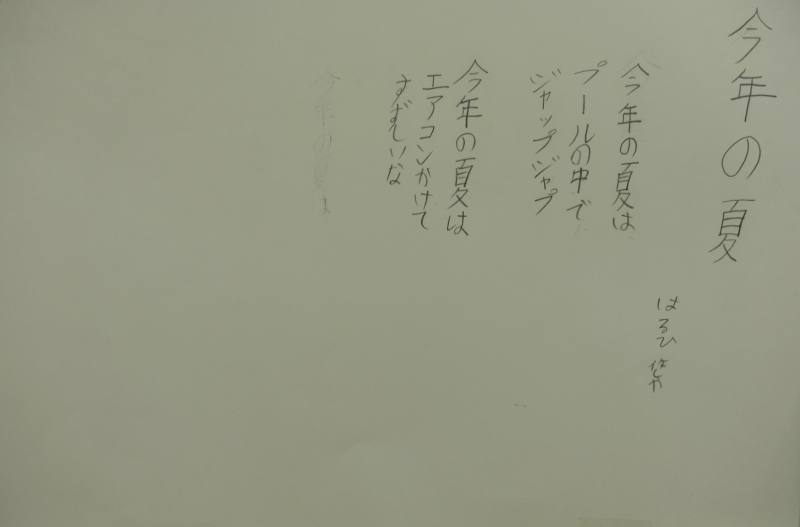 今年の夏
はるひ
今年の夏は
プールの中で
ジャップジャプ
今年の夏は
エアコンかけて
すずしいな
今年の夏は